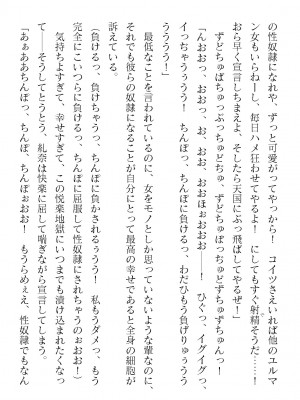 の性奴隷になれや、ずっと可愛がってやっから！　コイツさえいれば他のエルマ
ン女もいらねーし、毎日ハメ狂わせてやるよ！　にしてもすぐ射精そうだ……！
おら早く宣言しちまえよ、そしたら天国にぶっ飛ばしてやるぜ！」
ずどちゅばちゅっぶっちゅどちゅ、ずどちゅばっちゅどずちゅずちゅんっ！
「んおおっ、おおっ、お、おお、おおほぉおおお――！　ひぐっ、イグイグっ、
イっちゃうぅううう！　ちんぽっ、ちんぽに負けるっ、わだひもう負げりゅぅうう
ううううー！」
最低なことを言われているのに、女をモノとしか思っていないような輩なのに、
それでも彼らの奴隷になることが自分にとって最高の幸せであると全身の細胞が
訴えている。
（負けるっ、負けちゃうっ、ちんぽに負かされるぅうう！　私もうダメっ、もう
完全にこいつらに負けるっ、ちんぽに屈服して性奴隷にされちゃうのぉおお！）
気持ちよすぎて、幸せすぎて、この悦楽地獄にいつまでも漬け込まれたくなっ
て――そうしてとうとう、糺奈は快楽に屈して喘ぎながら宣言してしまう。
「あぁああちんぽっ、ちんぽぉおお！　もうらめぇえ、性奴隷でもなん